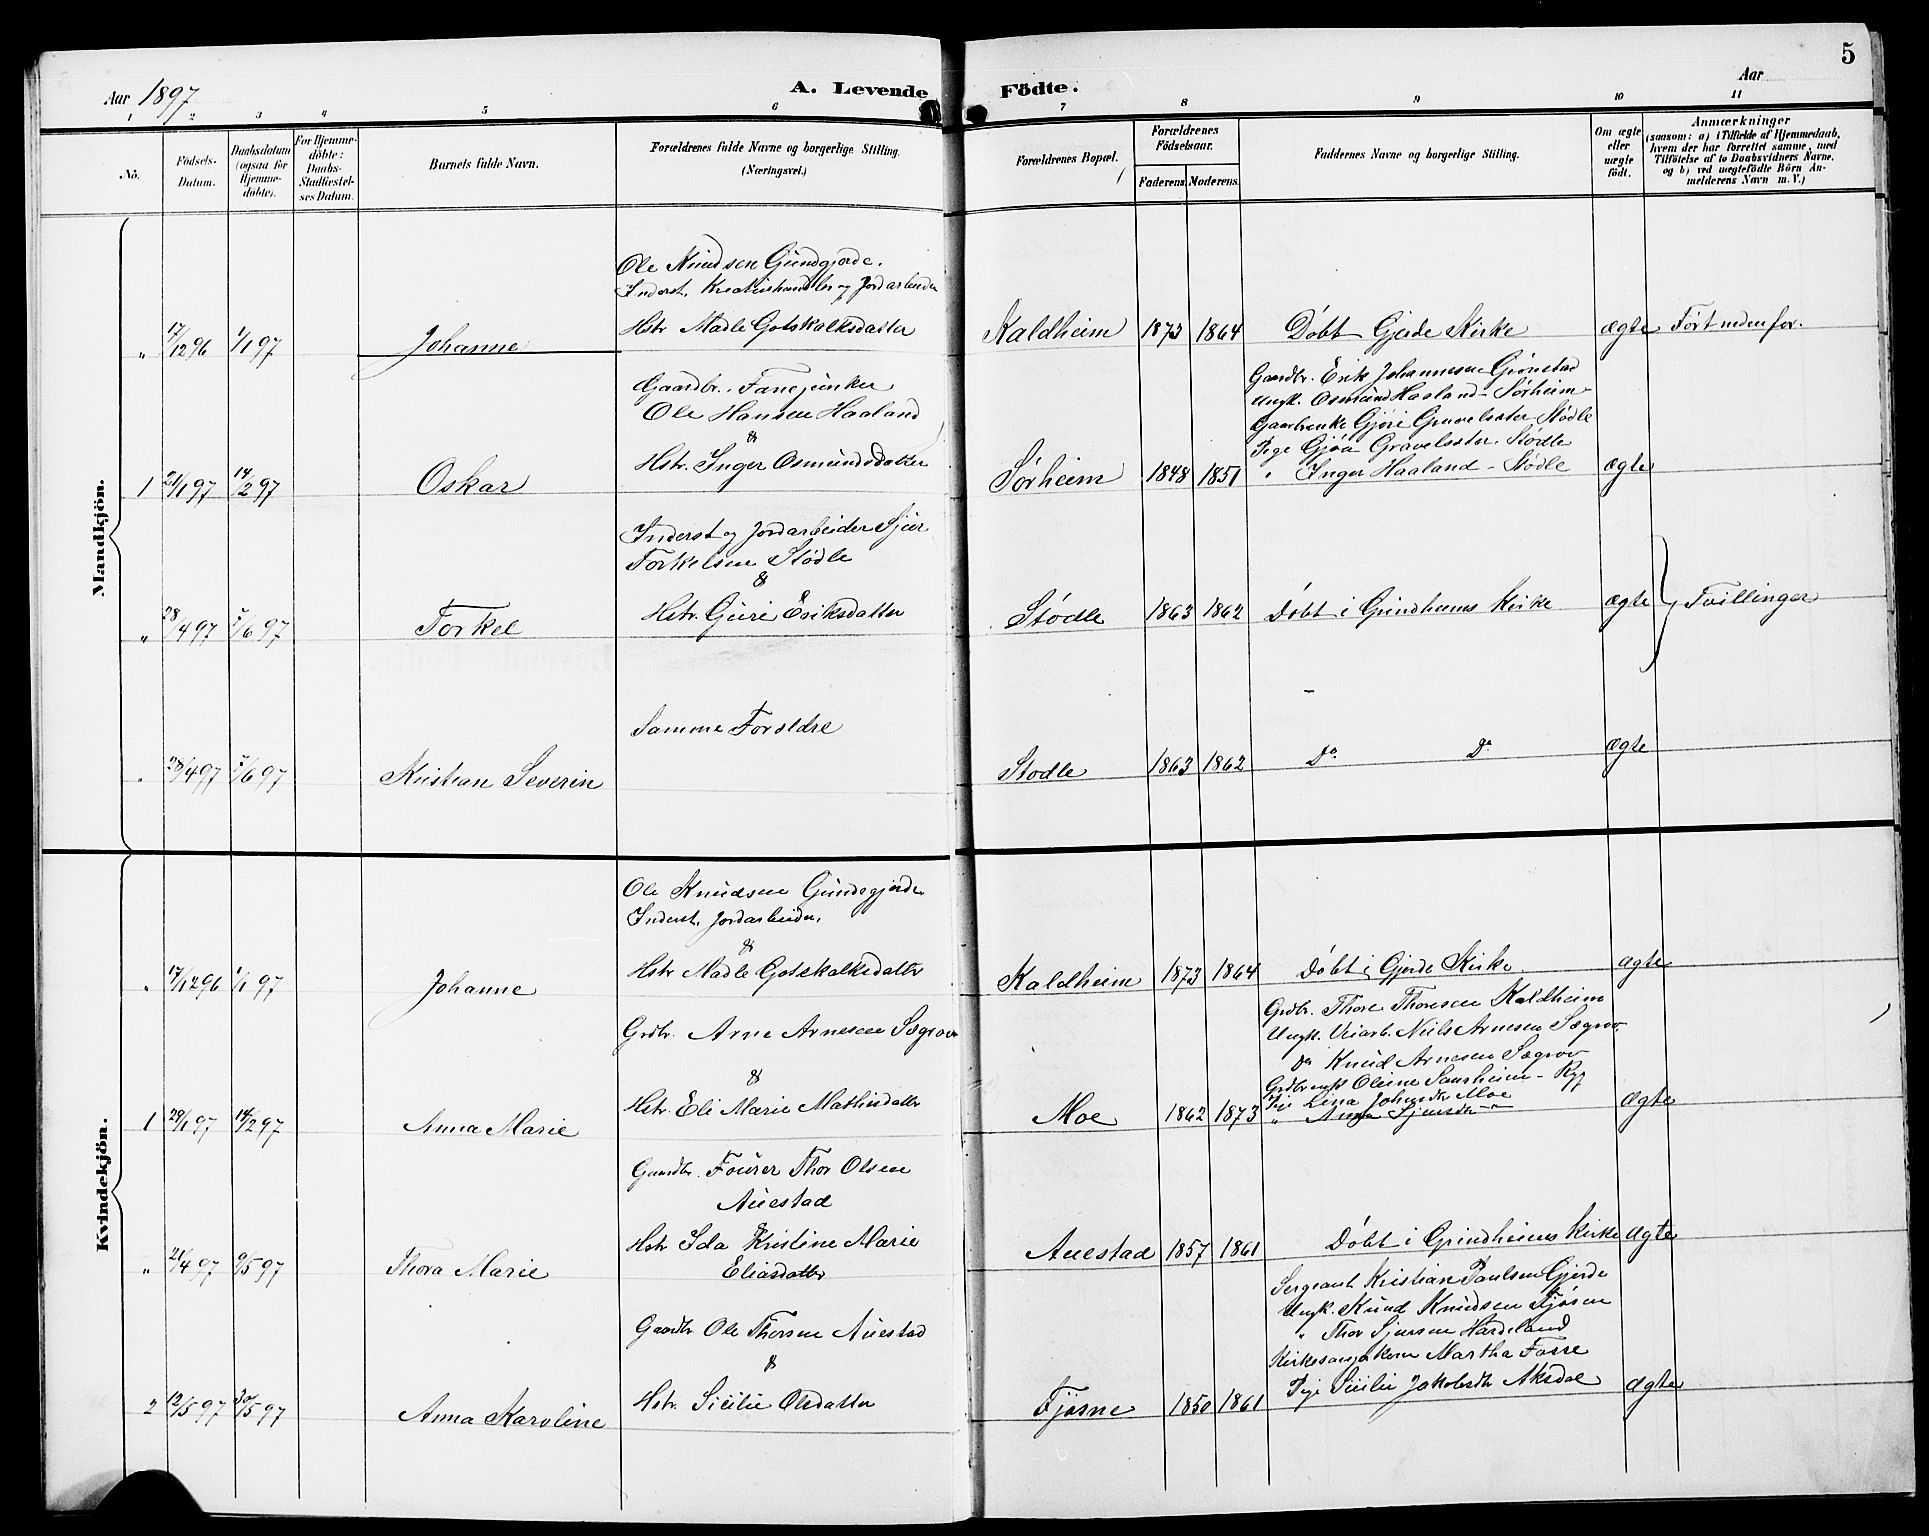 5
Aar 1897
A. Levende Födte.
Aar
1 2 3 4 5 6 7 8 9 10 11
No.
Födsels-
Datum.
Daabsdatum
(ogsaa for
Hjemme-
döbte).
For Hjemme-
döbte:
Daabs-
Stadfæstel-
ses Datum.
Barnets fulde Navn.
Forældrenes fulde Navne og borgerlige Stilling.
(Næringsvei.)
Forældrenes Bopæl.
Forældrenes
Födselsaar.
Faderens. Moderens.
Faddernes Navne og borgerlige Stilling.
Om ægte
eller
uægte
födt.
Anmærkninger
(saasom: a) i Tilfælde af Hjemmedaab,
hvem der har forrettet samme, med
Tilföielse af to Daabsvidners Navne,
og b) ved uægtefödte Börn An-
melderens Navn m. V.)
Mandkjön.
Ole Knudsen Gundgjerde.
Inderst, Kreaturhandler og Jordarbeider
Hstr Madle Gotskalksdatter
" 17/12 96 1/1 97 Johanne
Kaldheim 1873 1864 Døbt Gjerde Kirke ægte Ført nedenfor.
Gaardbr. Fanejunker
Ole Hansen Haaland
&
Hstr. Inger Osmundsdatter
1 21/1 97 14/2 97 Oskar
Sørheim 1848 1851
Gaardbr. Erik Johannesen Grønstad
Ungk. Osmund Haaland - Sørheim
Gaardenke Gjøri Gravelsæter Stødle
Pige Gjøa Gravelsæter. Stødle
" Inger Haaland - Stødle ægte
Inderst og Jordarbeider Sjur
Torkelsen Stødle
&
Hstr. Guri Eriksdatter
" 28/4 97 7/6 97 Torkel
Stødle 1863 1862 Døbt i Grindheims Kirke ægte } Tvillinger
Samme Forældre
" 28/4 97 7/6 97 Kristian Severin
Stødle 1863 1862 Do Do ægte
Kvindekjön.
Ole Knudsen Gundegjerde
Inderst, Jordarbeider,
&
Hstr Madle Gotskalksdattr
" 17/12 96 1/1 97 Johanne
Kaldheim 1873 1864 Døbt i Gjerde Kirke ægte
Grdbr. Arne Arnesen Sægrov
&
Hstr. Eli Marie Mathisdattr
1 29/1 97 14/2 97 Anna Marie
Moe 1862 1873
Grdbr. Thore Thoresen Kaldheim
Ungk. Veiarb. Niels Arnesen Sægrov
Do Knud Arnesen Sægrov
Grdbrenke Oline Saursheim - Ryg
Pige Lina Johnsdtr Moe
" Anna Sjursdtr - " ægte
Gaardbr. Fourer Thor Olsen
Auestad
&
Hstr Ida Kristine Marie
Eliasdattr
" 21/4 97 9/5 97 Thora Marie
Auestad 1857 1861 Døbt i Grindheims Kirke ægte
Gaardbr Ole Thorsen Auestad
&
Hstr. Sicilie Olsdatter
2 12/5 97 30/5 97 Anna Karoline
Fjøsne 1850 1861
Sergeant Kristian Paulsen Gjerde
Ungk. Knud Knudsen Fjøsen
" Thor Sjursen Hardeland
Kirkesangerkone Martha Fosse
Pige Sicilie Jakobsdtr Aksdal ægte